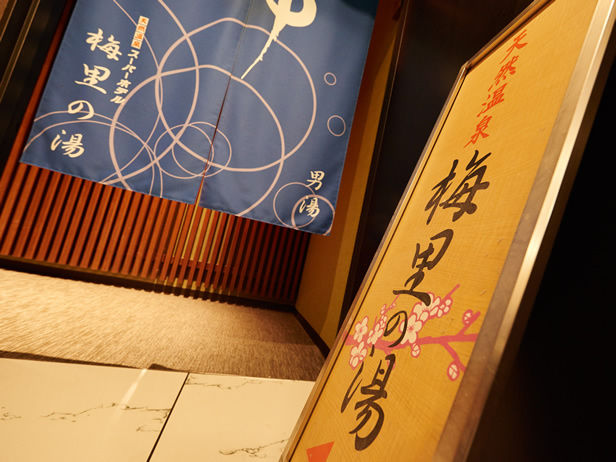 天然温泉
スーパーホテル
梅里の湯
男湯
天然温泉
梅里の湯